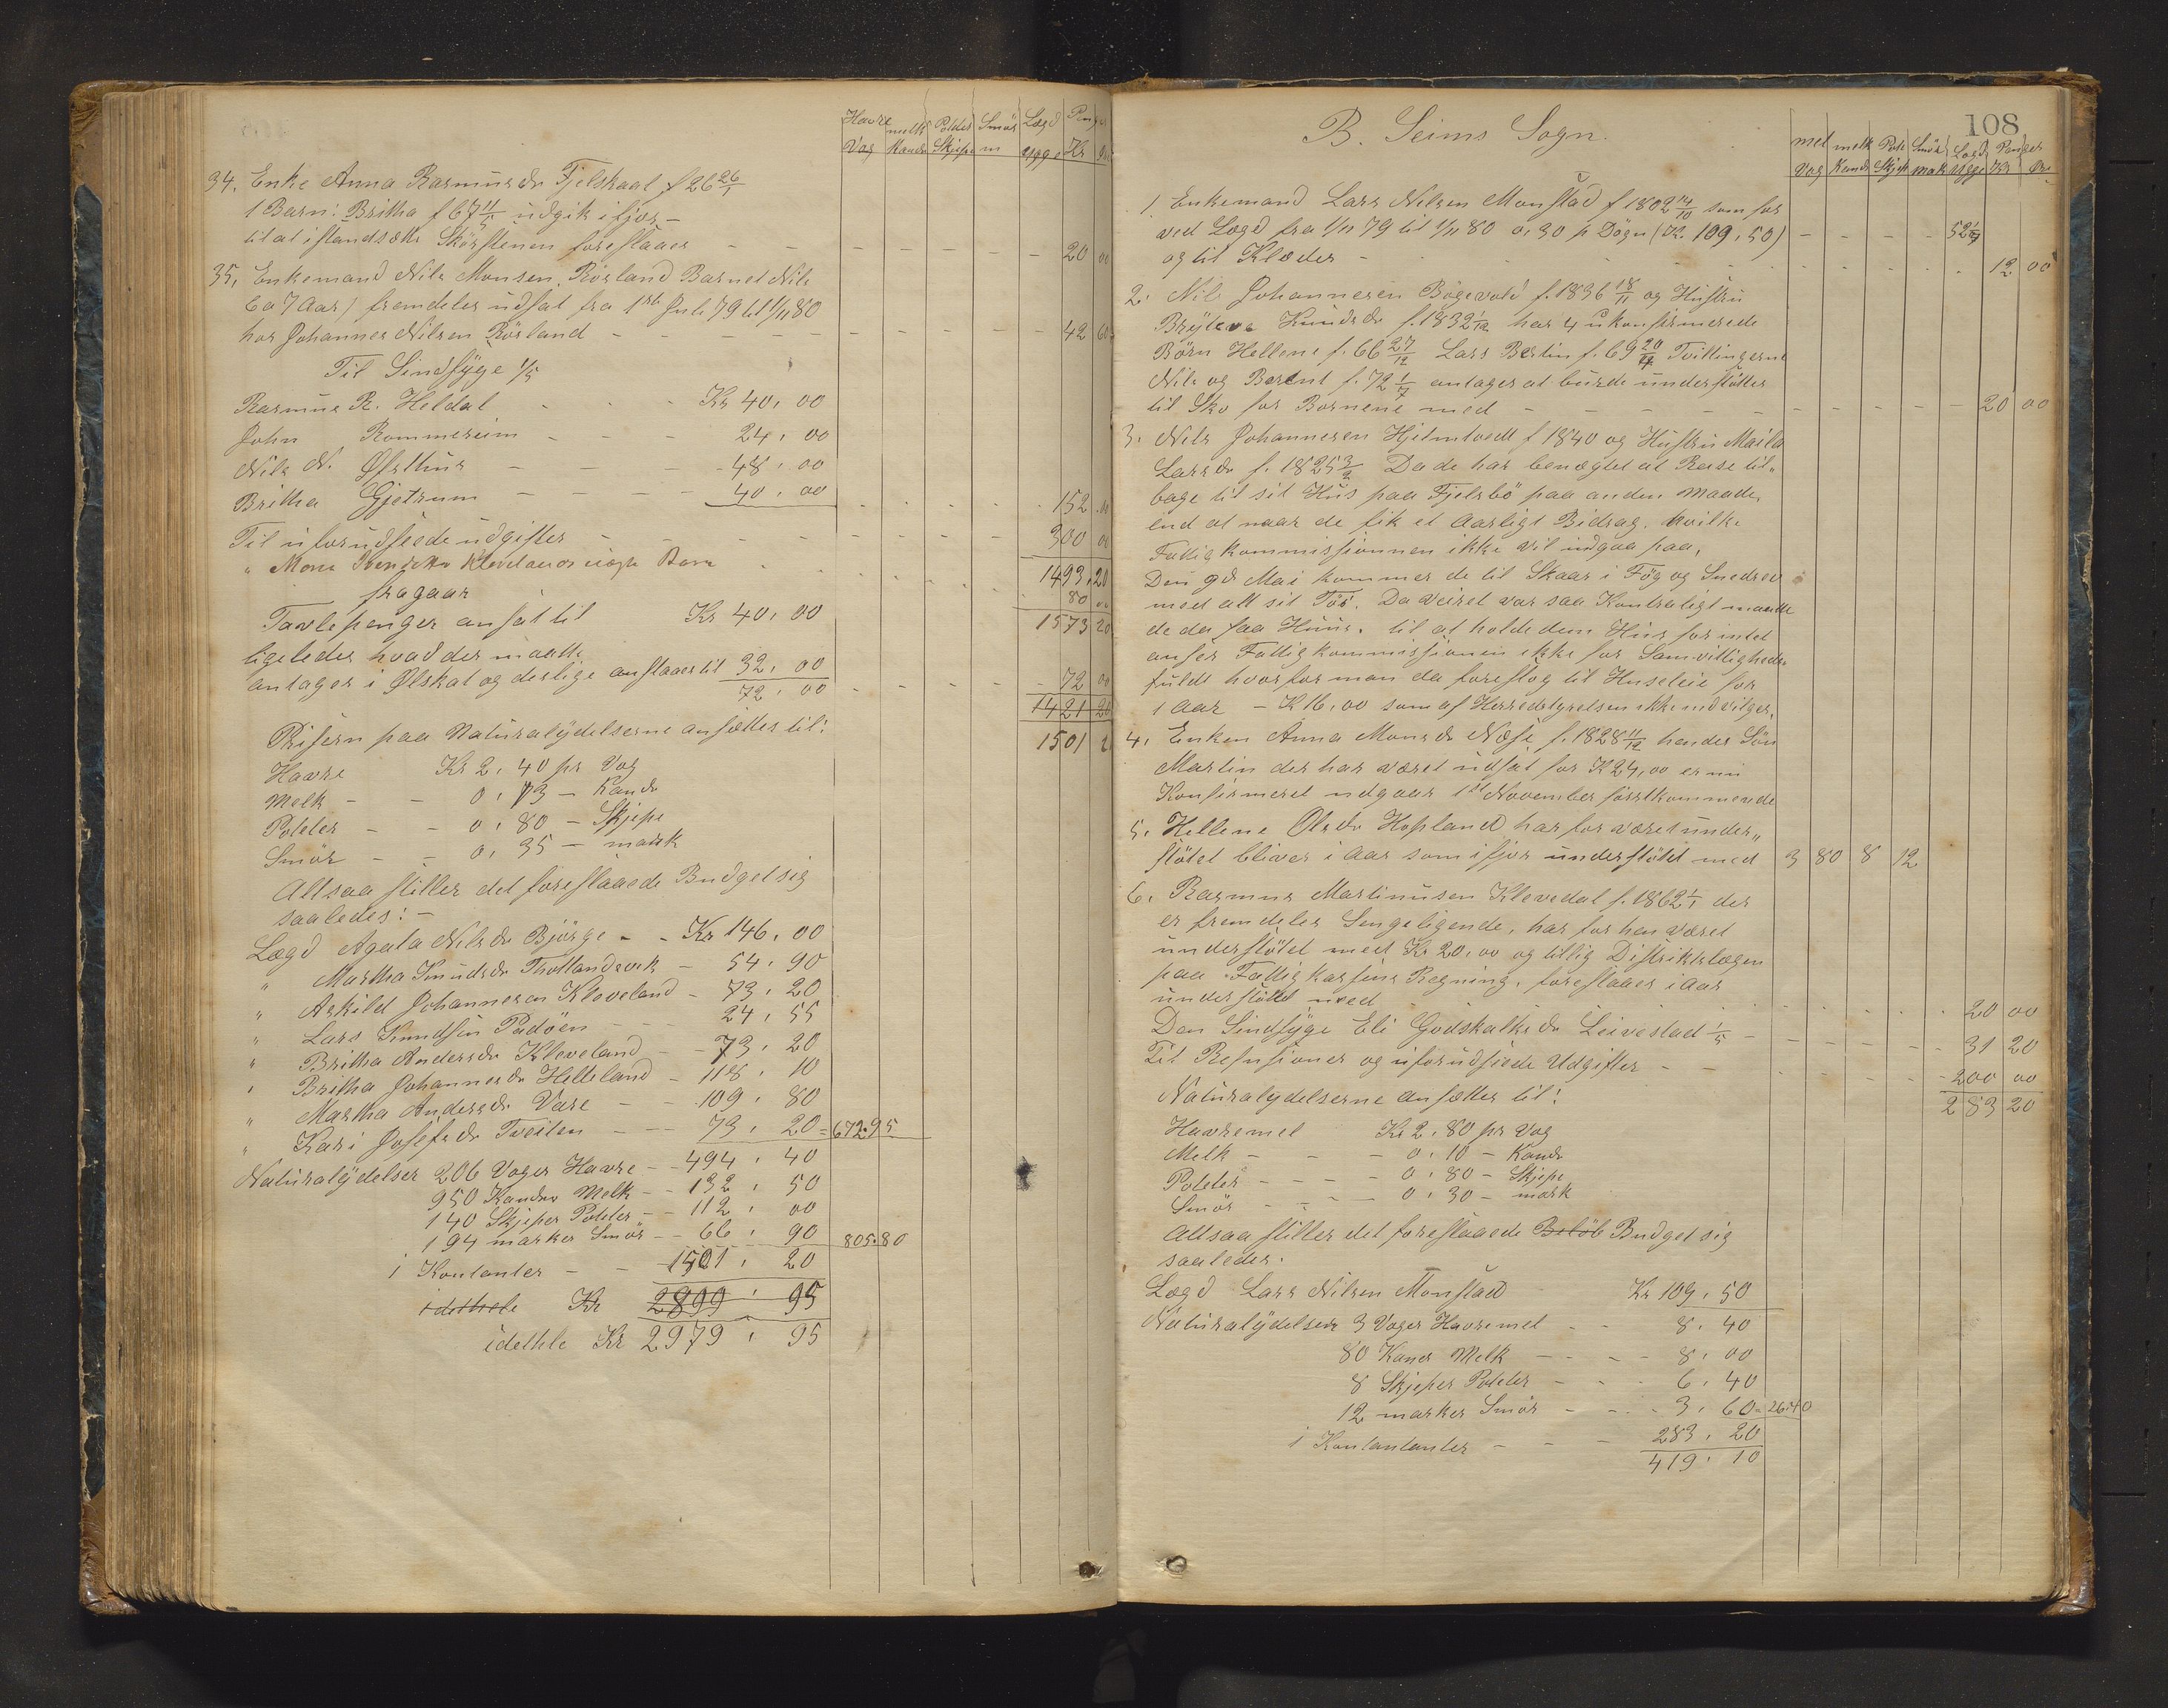 Havre melk Poteter Smör Lægd Penge
Vog Kander Skjeper m Kr
34. Enke Anna Rasmusdr Fjelskaal f 26 26/1
1 Barn: Britha f 67 11/11 udgik ifjor -
til at istandsætte Skörstenen foreslaaes - - - - - - - 20 00
35, Enkemand Nils Monsen Rörland Barnet Nils
6 a 7 Aar) fremdeles udsat fra 1ste Juli 79 til 1/11 80
hos Johannes Nilsen Rörland - - - - - - - 42 60
Til Sindsyge 1/5
Rasmus R. Heldal - - - Kr 40, 00
John Rommereim - - - 24, 00
Nils N. Öfsthus - - - 48, 00
Britha Gjetrum - - - 40, 00 152 00
Til uforudseede udgifter - - - - - 300 00
" Mons Kleveland Barn 1493, 20
fragaar 80 00
Tavlepenger ansat til Kr 40, 00 1573 20
ligeledes hvad der maatte
antages i Ølskat og deslige anslaaes til 32, 00
72, 00 - - - - - 72 00
1421 20
Prisern paa Naturalydelserne ansættes til: 1501 2
Havre Kr 2, 40 pr Vog
Melk - - 0, 13 - Kande
Poteter - - 0, 80 - Skjepe
Smör - - 0, 35 - mark
Altsaa stiller det foreslaaede Budget sig
saaledes: -
Lægd Agata Nilsdr Björge - - Kr 146, 00
" Martha Knudsdr Thollandsvik - 54, 90
" Askild Johannesen Kleveland - 73, 20
" Lars Knudsen Padöen - - 24, 55
" Britha Andersdr Kleveland - - 73, 20
" Britha Johannesdr Helleland - 118, 10
" Martha Andersdr Være - - 109, 80
" Kari Josefsdr Tveiten - - 73, 20 = 672,95
Naturalydelser 206 Voger Havre - - 494, 40
950 Kander Melk - - 132, 50
140 Skjeper Poteter - - 112, 00
194 marker Smör - - 66, 90 805,80
i Kontanter - - 1501, 20
idethele Kr 2899, 95
idethele Kr 2979, 95
108
B. Seims Sogn.
mel melk Pote Smör Lægd Penger
Vog Kande Skjep mark Kr Øre
1. Enkemand Lars Nilsen Monstad f 1802 14/10 som för
ved Lægd fra 1/11 79 til 1/11 80 0,30 p Dögn (Kr. 109, 50) - - - - 52 1/7
og til Klæder - - - - - 12 00
2. Nils Johannesen Bögevold f. 1836 18/11 og Hustru
Kundsdr f. 1832 1/12 har 4 ukonfirmerede
Börn Hellene f. 66 27/12 Lars Bertin f. 69 20/11 Tvillingerne
Nils og Berent f. 72 1/7 antages at burde understöttes
til Sko for Bornene med - - - - - - - - 20 00
3. Nils Johannesen Hjelmtvedt f 1840 og Hustru Maila
Larsdr f. 1825 3/2 Da de har benægtet at Reise til„
bage til sit Hus paa Fjelsbö paa anden Maade,
end at naar de fik et Aarligt Bidrag. hvilke
Fattigkommissionnen ikke vil indgaa paa,
Den 9de Mai kommer de til Skaar i Føg og Snedrev
med alt sit Töi. Da Veiret var saa Kontraligt maatte
de da faa Huus. til at holde dem Hus for intet
anser Fattigkommissionen ikke for Samvittigheds„
fuldt hvorfor man da foreslog til Huseleie for
1 Aar - K 16,00 som af Herredstyrelsen ikke indvilges.
4. Enken Anna Monsdr Næse f. 1828 11/12 hendes Sön
Martin der har været udsat for K 24,00 er nu
Konfirmeret udgaar 1st November förstkommende
5. Hellene Olsdr Hopland har för været under„
stötet bliver i Aar som ifjor understötet med 3 80 8 12
6. Rasmus Martinusen Klevedal f. 1862 1/1 der
er fremdeles Sengeligende, har för hen været
understötet med Kr 20,00 og tillig Distriktslægen
paa Fattigkassens Regning, foreslaaes i Aar
understöttet med - - - - - 20 00
Den Sindsyge Eli Godskalksdr Leivestad 1/5 - - - - - - 31 20
Til Refusioner og uforudseede Udgifter - - - - - - 200 00
Naturalydelserne ansættes til: 283 20
Havremel Kr 2, 80 pr Vog
Melk - - - 0, 10 - Kande
Poteter - - - 0, 80 - Skjepe
Smör - - - 0, 30 - mark
Altsaa stiller det foreslaaede Belöb Budget sig
saaledes.
Lægd Lars Nilsen Monstad Kr 109, 50
Naturalydelser 3 Voger Havremel - - 8, 40
80 Kaner Melk - - - 8, 00
8 Skjeper Poteter - - - 6, 40
12 marker Smör - - - 3, 60 = 26,40
i Kontantanter - - - 283, 20
419, 10